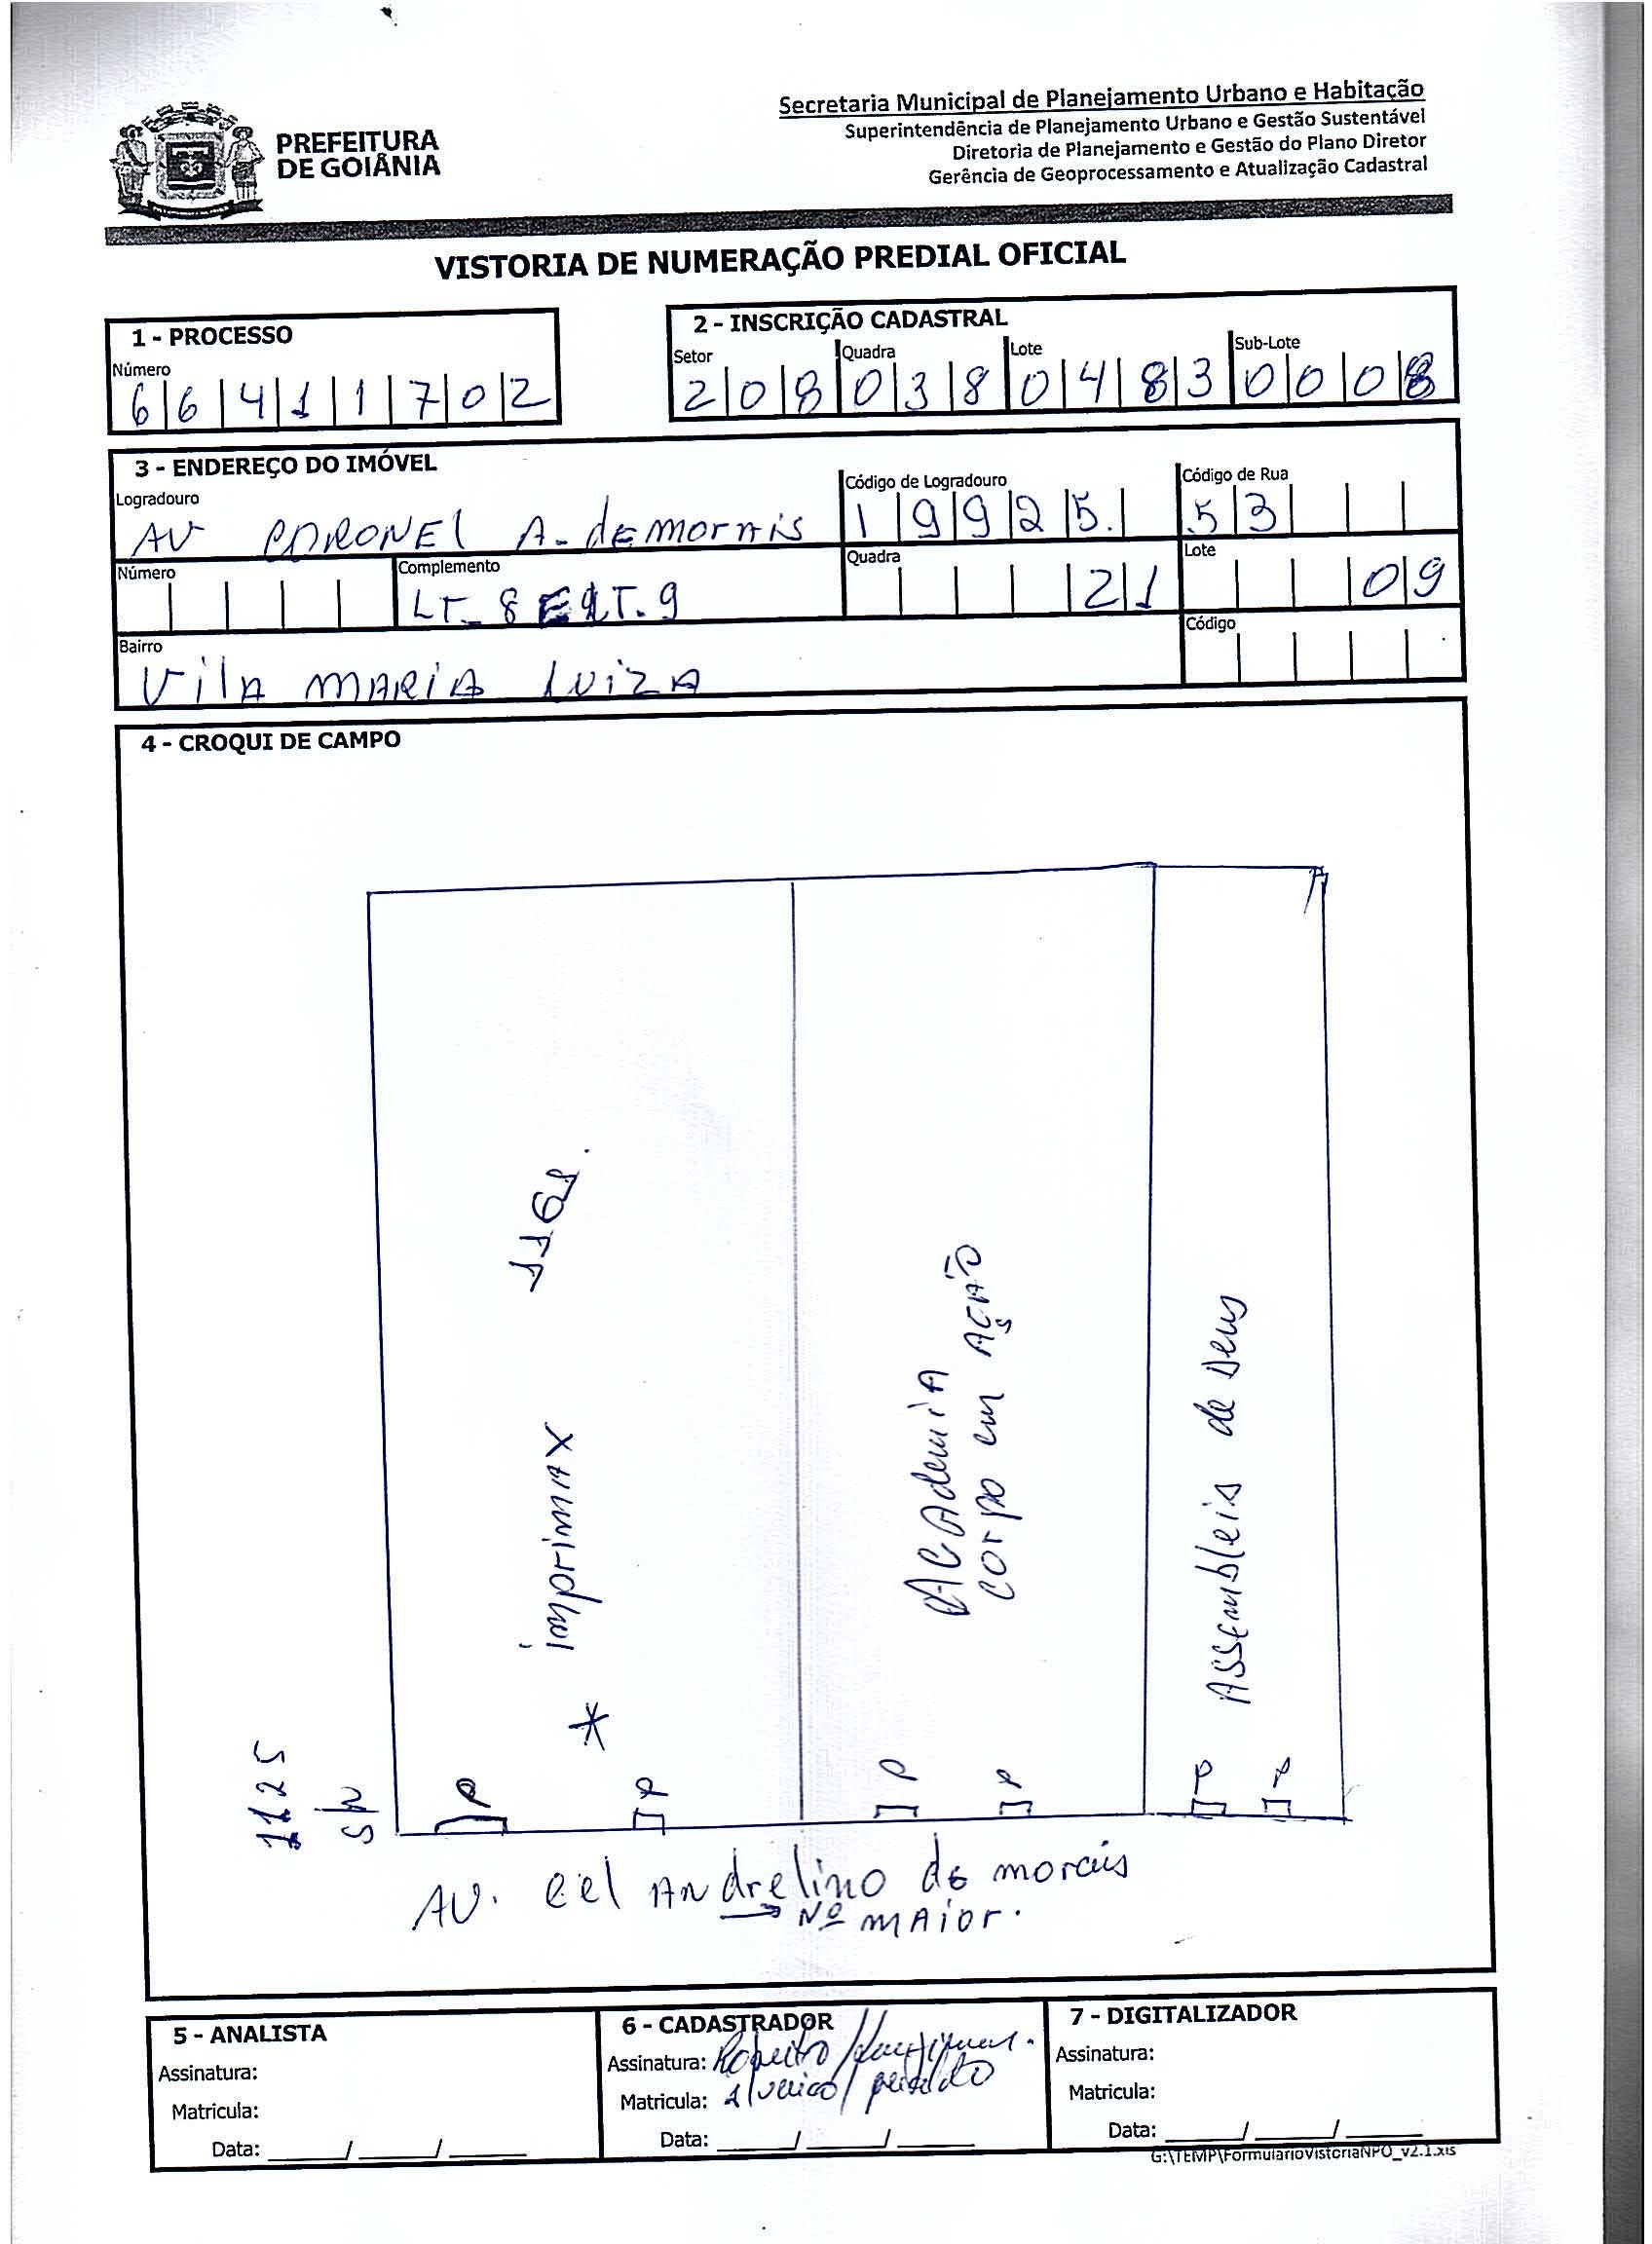 PREFEITURA
DE GOIÂNIA
Secretaria Municipal de Planejamento Urbano e Habitação
Superintendência de Planejamento Urbano e Gestão Sustentável
Diretoria de Planejamento e Gestão do Plano Diretor
Gerência de Geoprocessamento e Atualização Cadastral
VISTORIA DE NUMERAÇÃO PREDIAL OFICIAL
1 - PROCESSO
Número
6 6 4 1 1 7 0 2
2 - INSCRIÇÃO CADASTRAL
Setor Quadra Lote Sub-Lote
2 0 8 0 3 8 0 4 8 3 0 0 0 8
3 - ENDEREÇO DO IMÓVEL
Logradouro Código de Logradouro Código de Rua
AV CORONEL A. de morais 1 9 9 2 5. 5 3
Número Complemento Quadra Lote
LT_ 8 E LT. 9 2 1 0 9
Bairro Código
Vila MARIA LUIZA
4 - CROQUI DE CAMPO
imprimax
ACAdemiA
corpo em AÇÃO
Assembleis de Deus
* P P P P P P
1125
S/N
AV. cel ANdrelino de morais
→ Nº MAior.
5 - ANALISTA
Assinatura:
Matricula:
Data: ____/____/____
6 - CADASTRADOR
Assinatura: Roberto
Matricula:
Data: ____/____/____
7 - DIGITALIZADOR
Assinatura:
Matricula:
Data: ____/____/____
G:\TEMP\FormularioVistoriaNPO_v2.1.xls